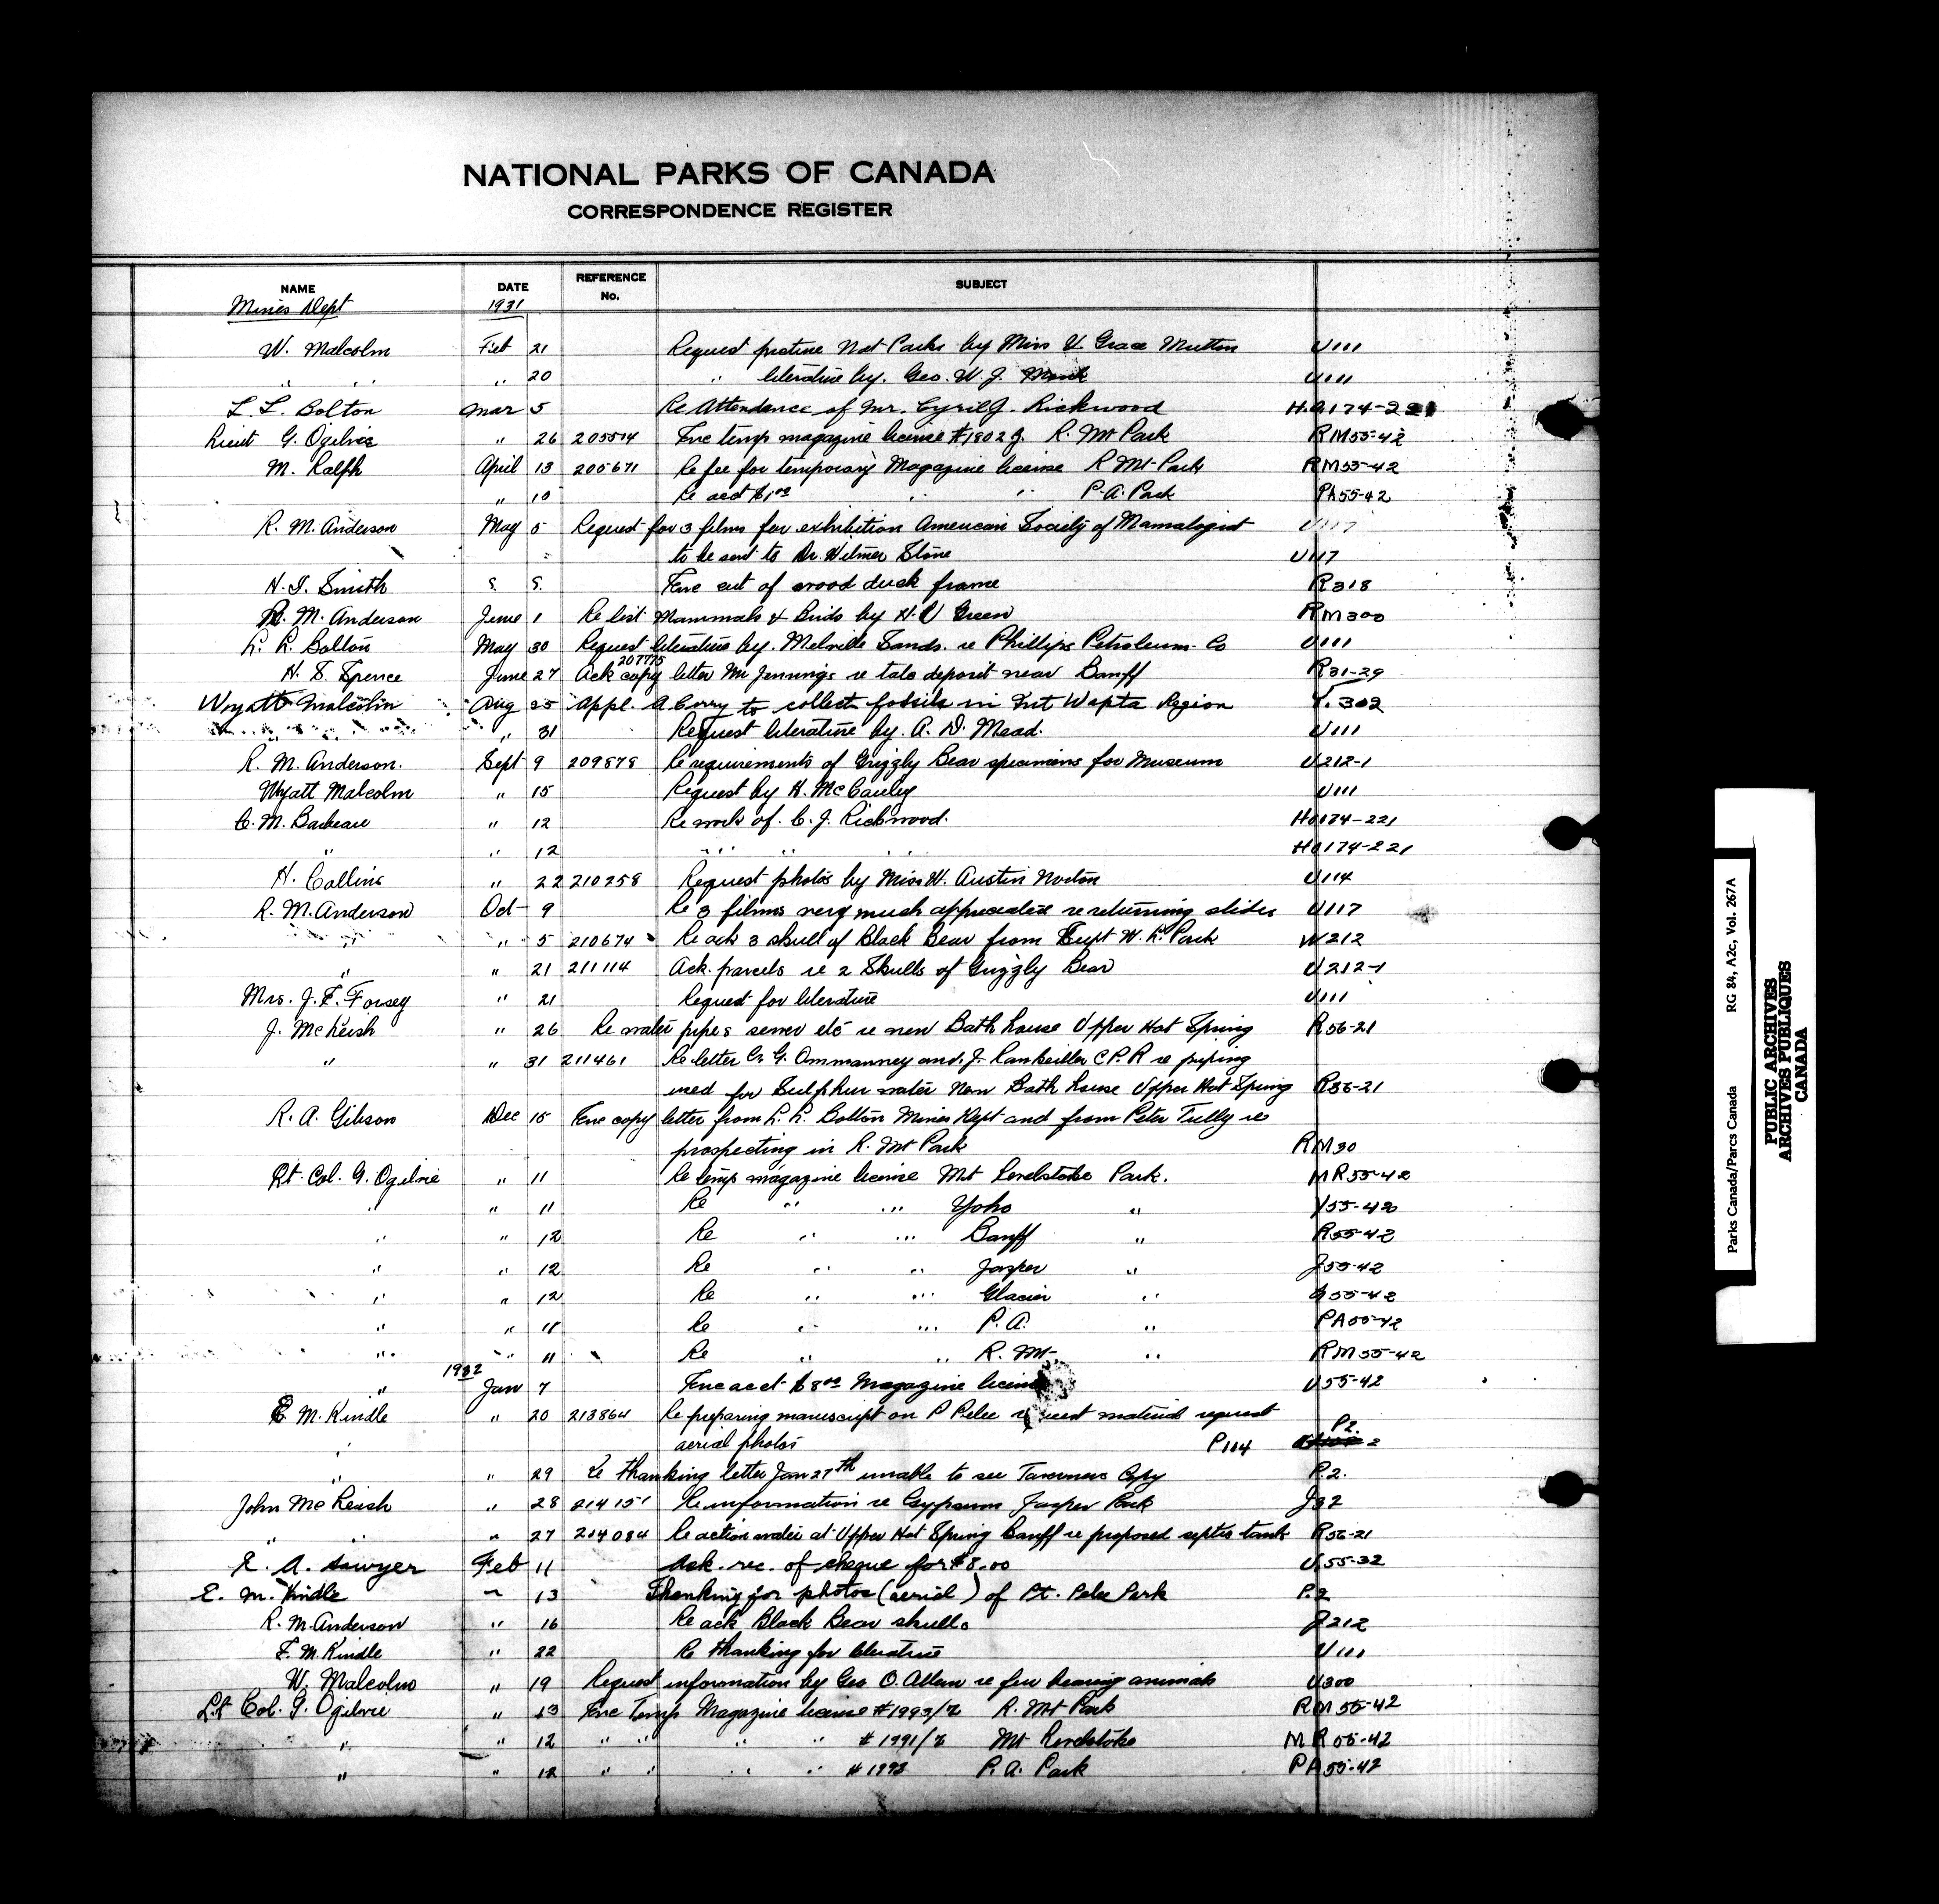 NATIONAL PARKS OF CANADA
CORRESPONDENCE REGISTER
NAME DATE REFERENCE No. SUBJECT
Mines Dept 1931
W. Malcolm Feb 21 Request picture Nat Parks by Miss V. Grace Mutton U111
" " " 20 " literature by. Geo. W. J. Monk U111
L. L. Bolton Mar 5 Re Attendance of Mr. Cyril J. Rickwood H.Q174-221
Lieut G. Ogilvie " 26 205574 Enc temp magazine license #1802 J. R. Mt Park RM55-42
M. Ralph April 13 205671 Re fee for temporary Magazine license R Mt Park RM55-42
" 10 Re acct $1.00 " " P.A. Park PA55-42
R. M. Anderson May 5 Request for 3 films for exhibition American Society of Mamalogist U117
to be sent to Dr. Witmer Stone U117
H. I. Smith " 5 Enc cut of wood duck frame R318
R. M. Anderson June 1 Re list Mammals & Birds by H. U Green RM300
L. L. Bolton May 30 Request literature by. Melville Sands. re Phillips Petroleum. Co U111
H. S. Spence June 27 207775 Ack copy letter Mr Jennings re talc deposit near Banff R31-29
Wyatt Malcolm Aug 25 Appl. A Corry to collect fossils in Wapta Region Y.302
" 31 Request literature by. A. D. Mead. U111
R. M. Anderson. Sept 9 209878 Re requirements of Grizzly Bear specimens for Museum U212-1
Wyatt Malcolm " 15 Request by H. McCauley U111
C. M. Barbeau " 12 Re work of. C. J. Rickwood. HQ174-221
" " 12 " " " HQ174-221
H. Collins " 22 210258 Request photos by Miss W. Austin Norton U114
R. M. Anderson Oct 9 Re 3 films very much appreciated re returning slides U117
" " 5 210674 Re ack 3 skull of Black Bear from Supt W. L. Park W212
" " 21 211114 Ack. parcels re 2 Skulls of Grizzly Bear U212-1
Mrs. J. F. Forsey " 21 Request for literature U111
J. McLeish " 26 Re water pipes sewer etc re new Bath house Upper Hot Spring R56-21
" " 31 211461 Re letter C. G. Ommanney and. J. Rankeillor C.P.R re piping
used for Sulphur water New Bath house Upper Hot Spring R56-21
R. A. Gibson Dec 15 Enc copy letter from L. L. Bolton Mines Dept and from Peter Tully re
prospecting in R. Mt Park RM30
Lt. Col. G. Ogilvie " 11 Re temp magazine license Mt Revelstoke Park. MR55-42
" " 11 Re " " Yoho " Y55-42
" " 12 Re " " Banff " R55-42
" " 12 Re " " Jasper " J55-42
" " 12 Re " " Glacier " G55-42
" " 11 Re " " P.A. " PA55-42
" " 11 Re " " R. Mt " RM55-42
1932
" Jan 7 Enc acct $8.00 Magazine license U55-42
E. M. Kindle " 20 213864 Re preparing manuscript on P Pelee request material request
aerial photos P114 P2.
" " 29 Re thanking letter Jan 27th unable to see Taverners Copy P.2.
John McLeish " 28 214151 Re information re Gypsum Jasper Park J32
" " " 27 214084 Re action water at Upper Hot Spring Banff re proposed septic tank R56-21
E. A. Sawyer Feb 11 Ack. rec. of cheque for $8.00 U.55-32
E. M. Kindle " 13 Thanking for photos (aerial) of Pt. Pelee Park P.2
R. M. Anderson " 16 Re ack Black Bear skulls J212
E. M. Kindle " 22 Re thanking for literature U111
W. Malcolm " 19 Request information by Geo O. Allen re fur bearing animals U300
Lt Col. G. Ogilvie " 13 Enc Temp Magazine license #1993/2 R. Mt Park RM55-42
" " 12 " " " " #1991/2 Mt Revelstoke MR55-42
" " 12 " " " " #1993 P.A. Park PA55-42
Parks Canada/Parcs Canada RG 84, A2c, Vol. 267A
PUBLIC ARCHIVES
ARCHIVES PUBLIQUES
CANADA